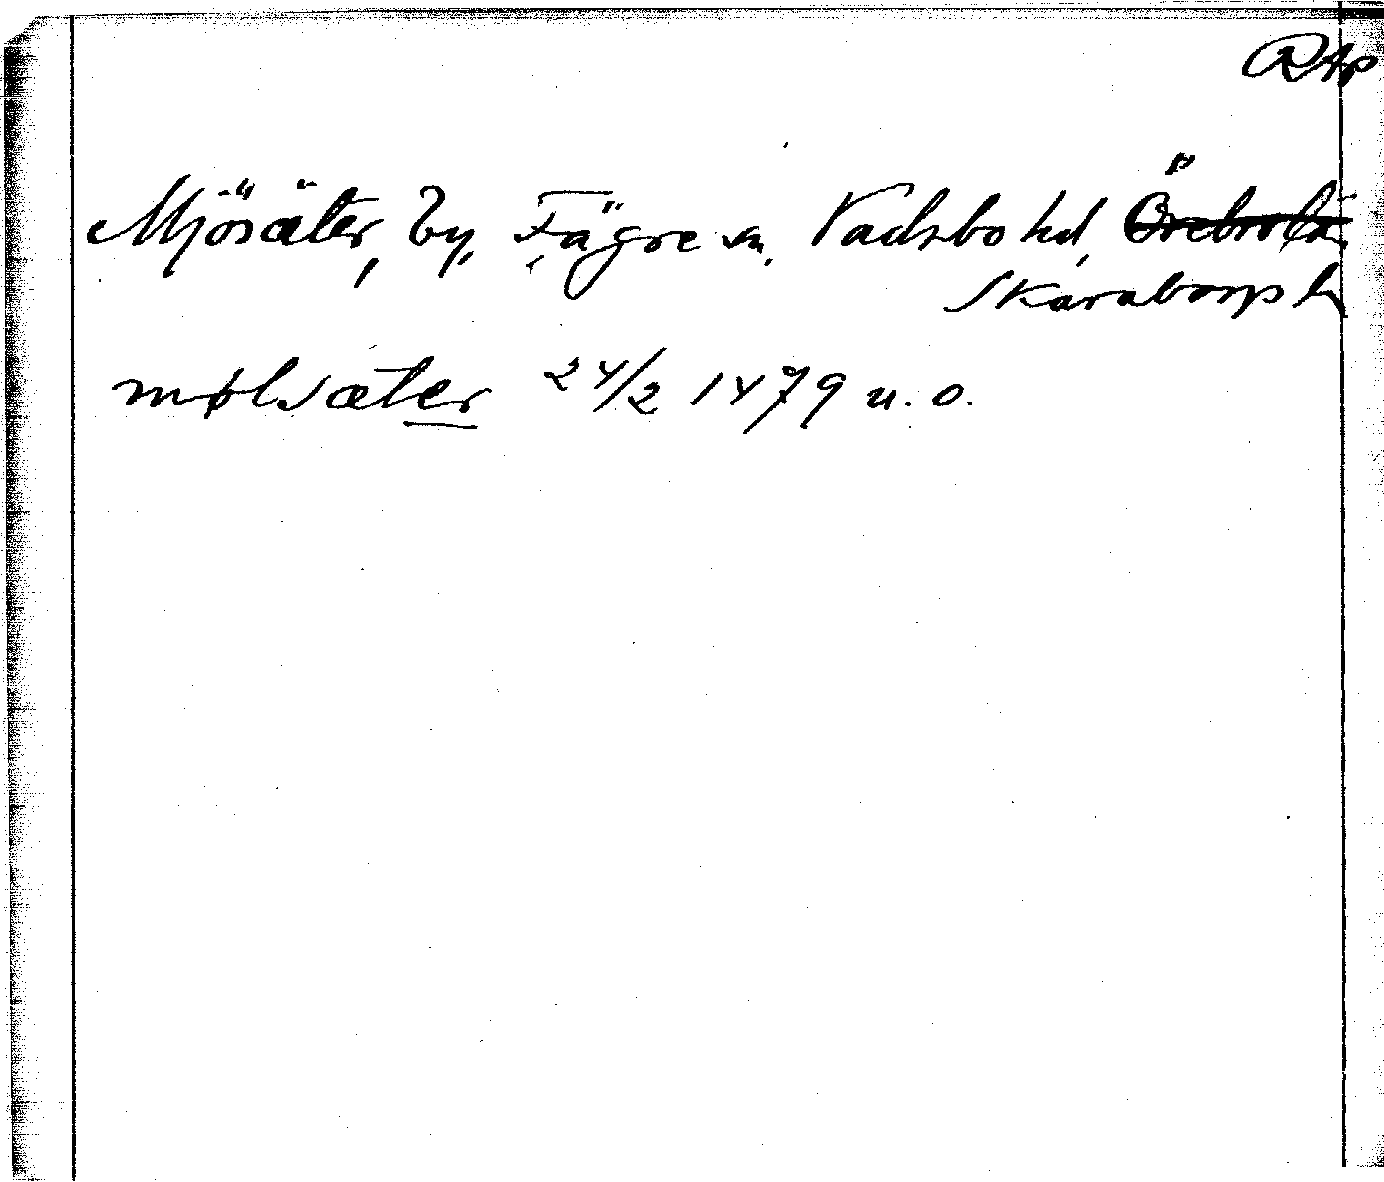 RAp
Mjösäter, by, Fägre sn, Vadsbo hd, Örebro län
Skaraborgs län
mølsæter 24/2 1479 u. o.